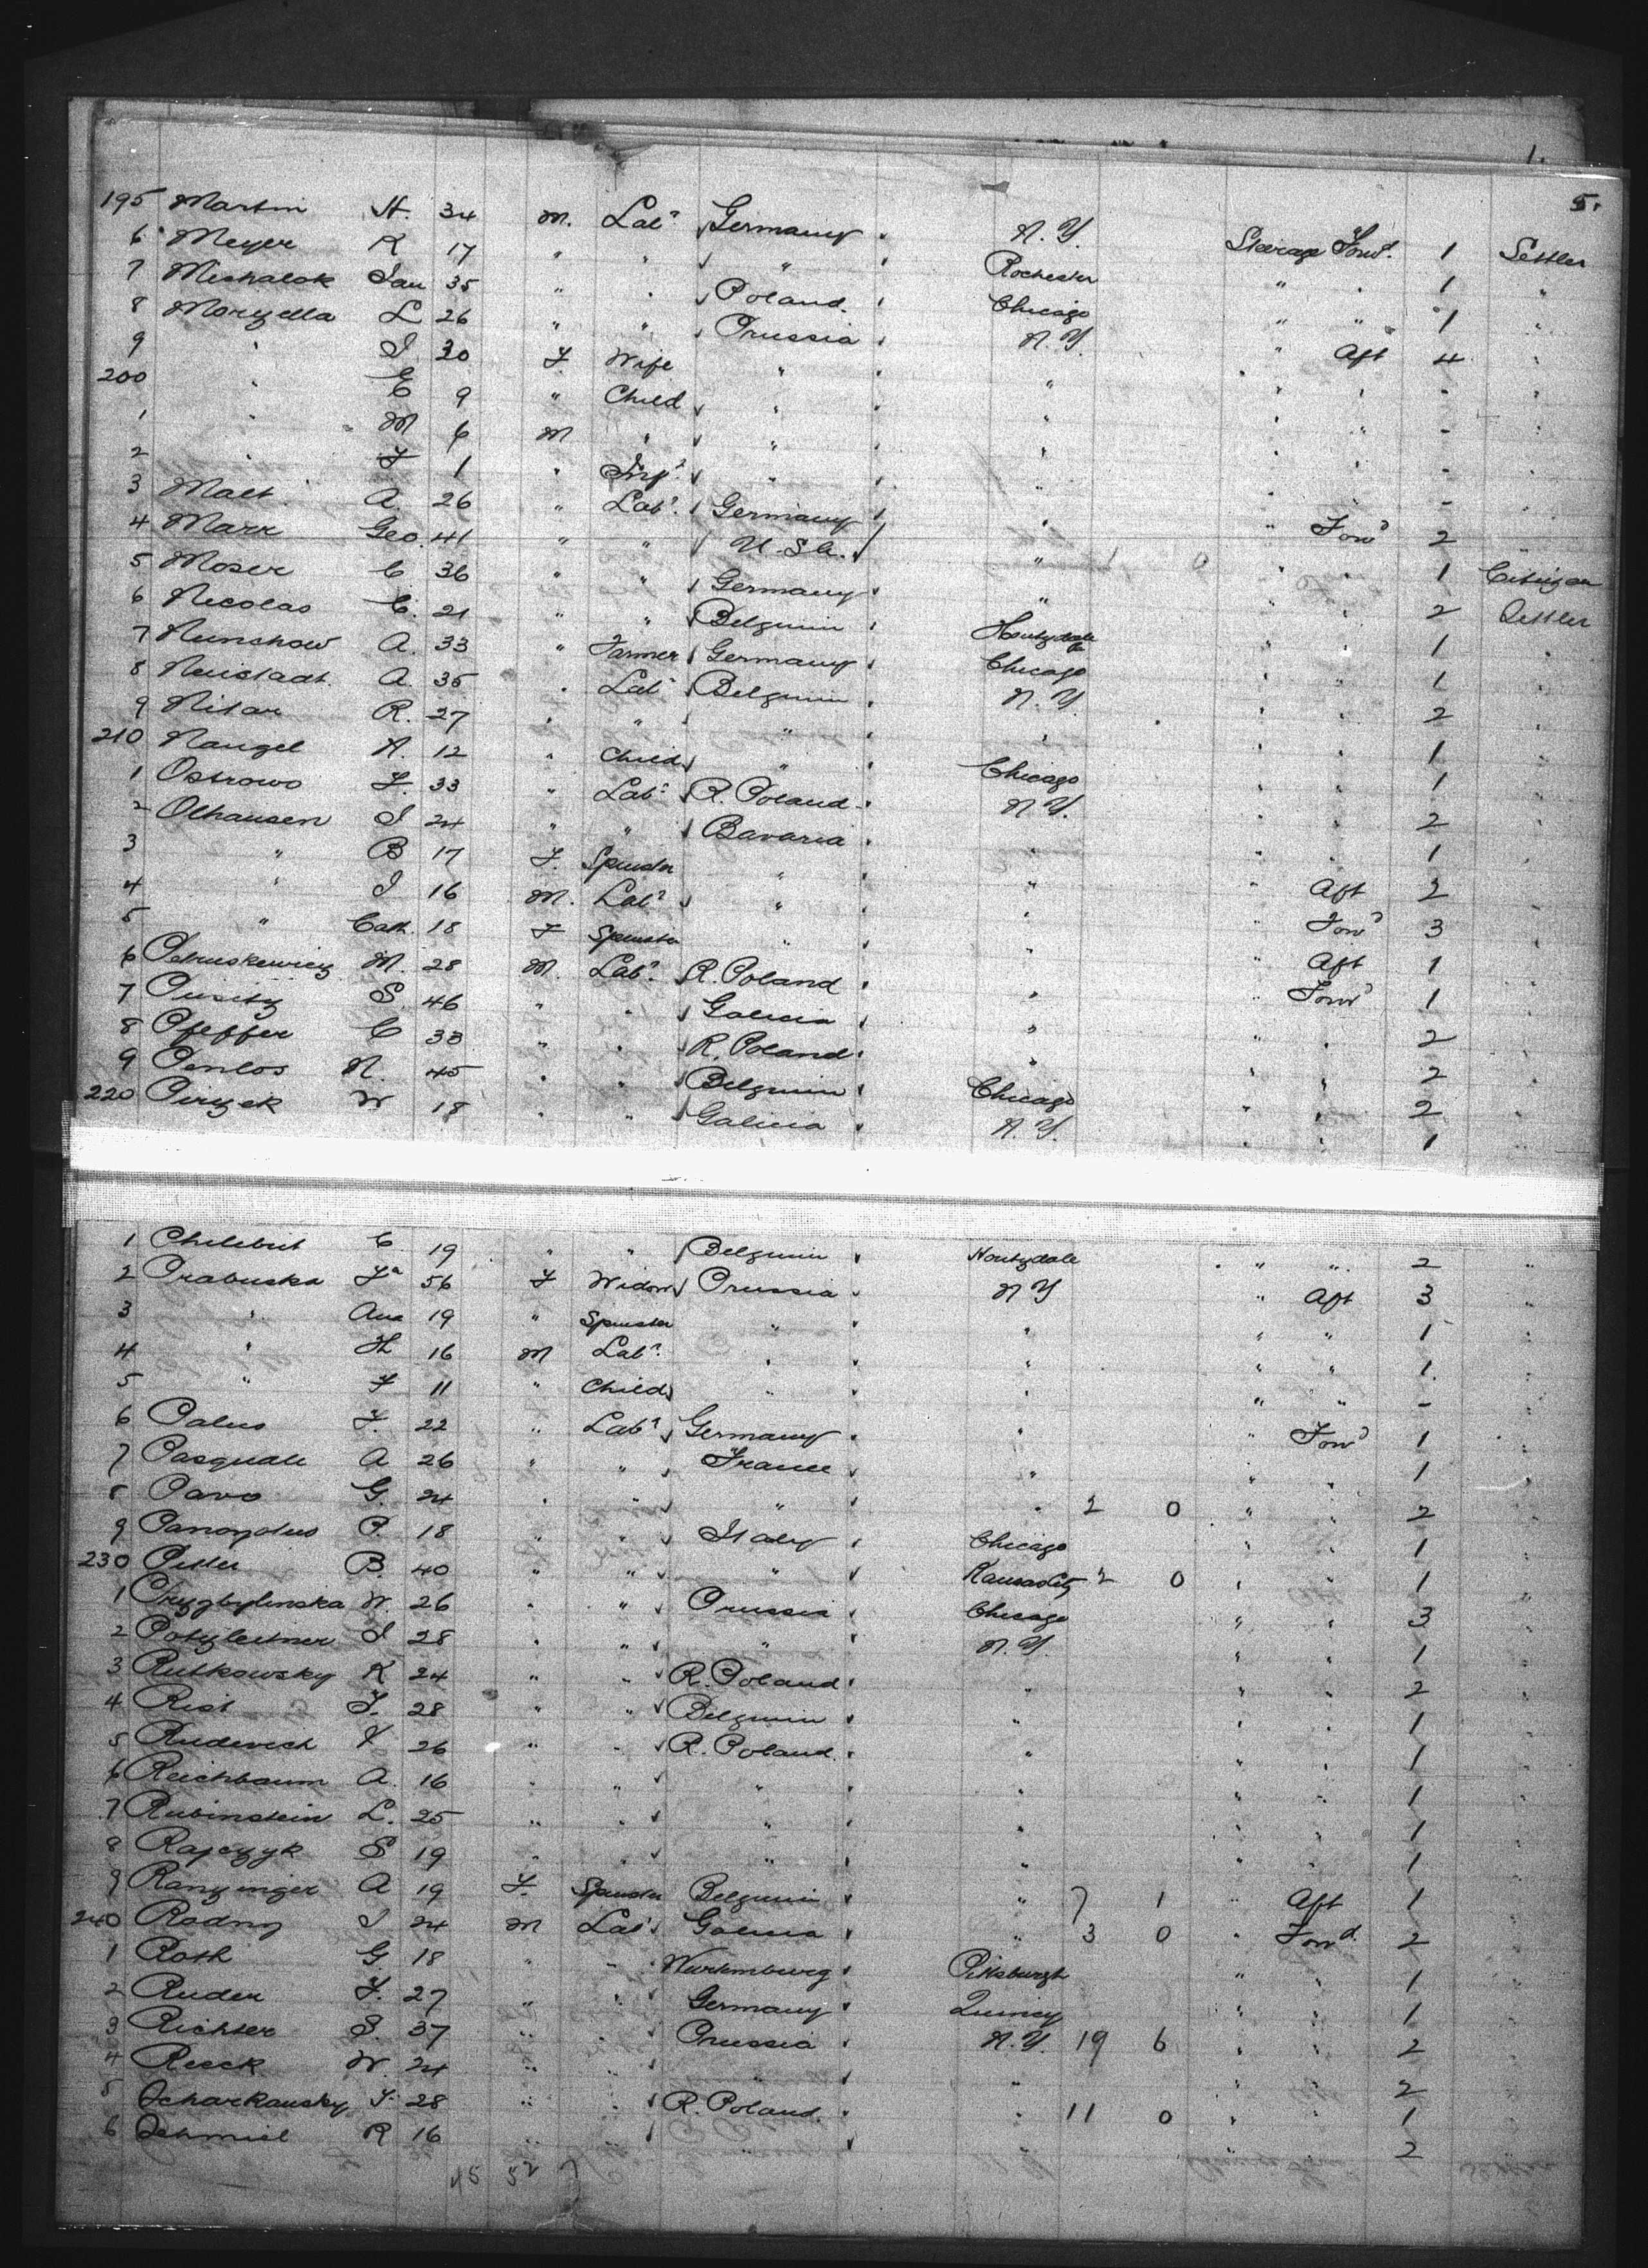 1.
5.
195 Martin H. 34 M. Labr Germany N.Y. Steerage Forwd. 1 Settler
6 Meyer K 17 " " " Rochester " " 1 "
7 Michalok Jan 35 " " Poland. Chicago " " 1 "
8 Moryella L 26 " " Prussia N.Y. " Aft 4 "
9 " J 30 F. Wife " " " " - "
200 " E 9 " Child " " " " - "
1 " M 6 M " " " " " - "
2 " F 1 " Inft. " " " " - "
3 Malt A. 26 " Labr. Germany " " Forwd 2 "
4 Marx Geo. 41 " " U.S.A. " " " 1 Citizen
5 Moser C 36 " " Germany " " " 2 Settler
6 Nicolas C. 21 " " Belgium Houtzdale " " 1 "
7 Neinchow A. 33 " Farmer Germany Chicago " " 1 "
8 Neustadt. A. 35 " Labr Belgium N.Y. " " 2 "
9 Nitar R. 27 " " " " " " 1 "
210 Naugel A. 12 " Child " Chicago " " 1 "
1 Ostrowo F. 33 " Labr R. Poland N.Y. " " 2 "
2 Olhausen J 24 " " Bavaria " " " 1 "
3 " B 17 F. Spinster " " " Aft 2 "
4 " J 16 M. Labr " " " Forwd 3 "
5 " Cath. 18 F Spinster " " " Aft 1 "
6 Petruskewicz M. 28 M. Labr. R. Poland " " Forwd 1 "
7 Pusity S. 46 " " Galicia " " " 2 "
8 Pfeffer C 33 " " R. Poland " " " 2 "
9 Penlos N. 45 " " Belgium Chicago " " 2 "
220 Piryek W 18 " " Galicia N.Y. " " 1 "
1 Chilebut C 19 " " Belgium Houtzdale " " 2 "
2 Prabuska Fa 56 F Widow Prussia N Y " Aft 3 "
3 " Aua 19 " Spinster " " " " 1 "
4 " Th 16 M Labr. " " " " 1. "
5 " F 11 " Child " " " " - "
6 Palus F. 22 " Labr Germany " " Forwd 1 "
7 Pasquale A 26 " " France " " " 1 "
8 Pavo G. 24 " " " " 2 0 " " 2 "
9 Panoyotus P. 18 " " Italy Chicago " " 1 "
230 Pitter B. 40 " " " Kansas City 2 0 " " 1 "
1 Przybylinska W. 26 " " Prussia Chicago " " 3 "
2 Potzleitner J 28 " " " N.Y. " " 1 "
3 Rutkowsky K 24 " " R. Poland " " " 2 "
4 Rist F. 28 " " Belgium " " " 1 "
5 Rudevich V 26 " " R. Poland. " " " 1 "
6 Reichbaum A. 16 " " " " " " 1 "
7 Rubinstein L. 25 " " " " " " 1 "
8 Rajczyk S 19 " " " " " " 1 "
9 Ranzinger A 19 F. Spinster Belgium " 7 1 " Aft 1 "
240 Radny J 24 M Labr Galicia " 3 0 " Forwd. 2 "
1 Roth G. 18 " " Wurtemburg Pittsburgh " " 1 "
2 Ruder F. 27 " " Germany Quincy " " 1 "
3 Richter S. 37 " " Prussia N.Y. 19 6 " " 2 "
4 Reeck W. 24 " " " " " " 2 "
5 Scharkausky F. 28 " " R. Poland. " 11 0 " " 1 "
6 Schmiel R 16 " " " " " " 2 "
45 52 7